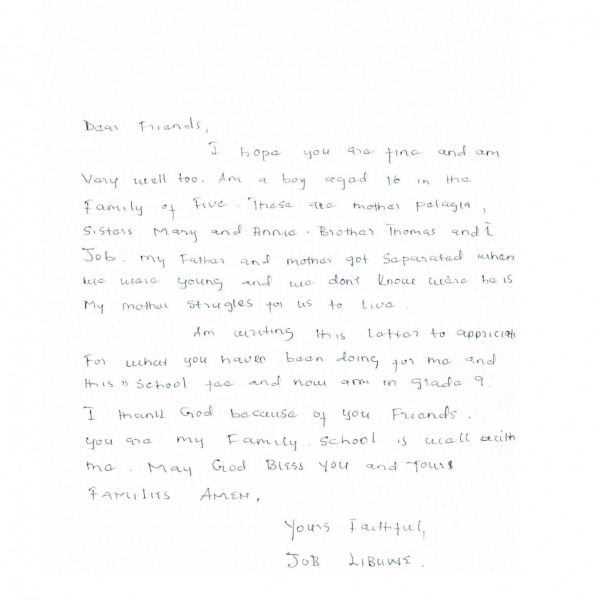 Dear Friends,
I hope you are fine and am
Very well too. Am a boy aged 16 in the
Family of Five. These are mother pelagia,
Sisters Mary and Annie. Brother Thomas and I
Job. My Father and mother got Saparated when
we were young and we don't know were he is
My mother strugles for us to live.
Am writing this latter to appriciate
For what you haven been doing for me and
this is School fee and now am in grade 9.
I thank God because of you Friends.
you are my Family. School is well with
me. May God Bless You and Yours
FAMILIES AMEN.
Yours Faithful,
JOB LIBUWE.